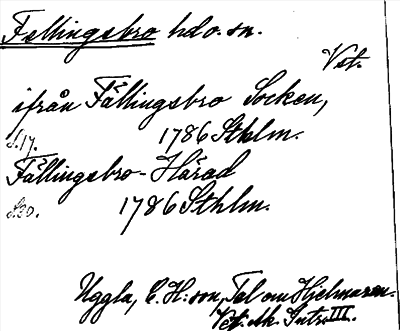 Fellingsbro hd o. sn.
Vst.
ifrån Fällingsbro Socken,
s.17. 1786 Sthlm.
Fällingsbro-Härad
s.20. 1786 Sthlm.
Uggla, C. H:son, Tal om Hjelmaren.
Vet. Ak. Intr. III.